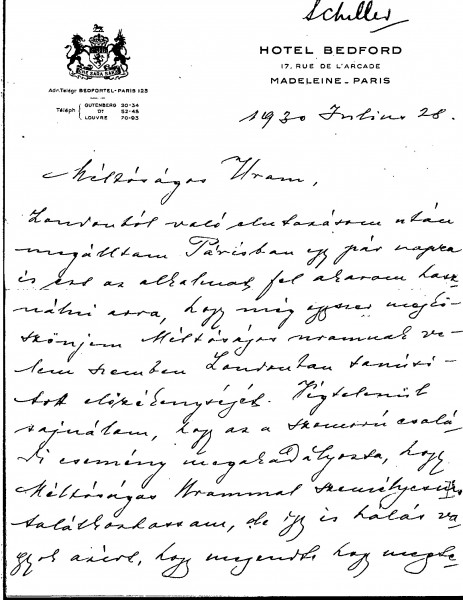 Schiller
HOTEL BEDFORD
17, RUE DE L'ARCADE
MADELEINE _ PARIS
Adr. Télégr BEDFORTEL-PARIS 123
Téléph GUTENBERG 30-34
D° 52-48
LOUVRE 70-93
1930 Julius 28.
Méltóságos Uram,
Londonból való elutazásom után
megálltam Párisban egy pár napra
és ezt az alkalmat fel akarom hasz-
nálni arra, hogy még egyszer megkö-
szönjem Méltóságos uramnak ve-
lem szemben Londonban tanusi-
tott előzékenységét. Végtelenül
sajnálom, hogy az a szomorú csalá-
di esemény megakadályozta, hogy
Méltóságos Urammal személyesen
találkozhassam, de így is hálás va-
gyok azért, hogy megendte hogy megte-